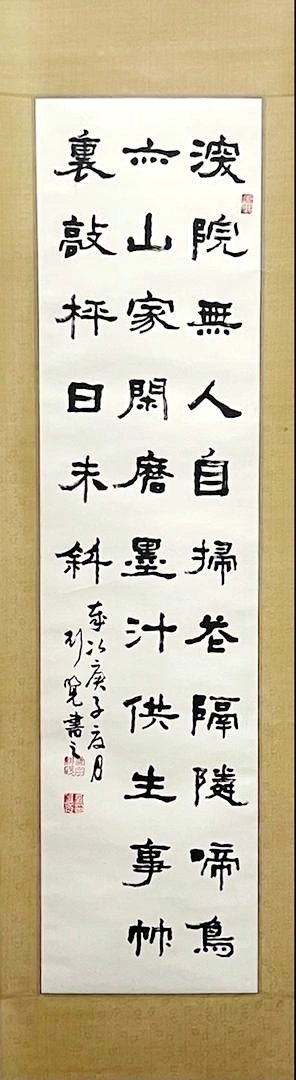 深院無人自掃花隔隣啼鳥
亦山家閑磨墨汁供生事竹
裏敲枰日未斜
歲次庚子夏月
書之